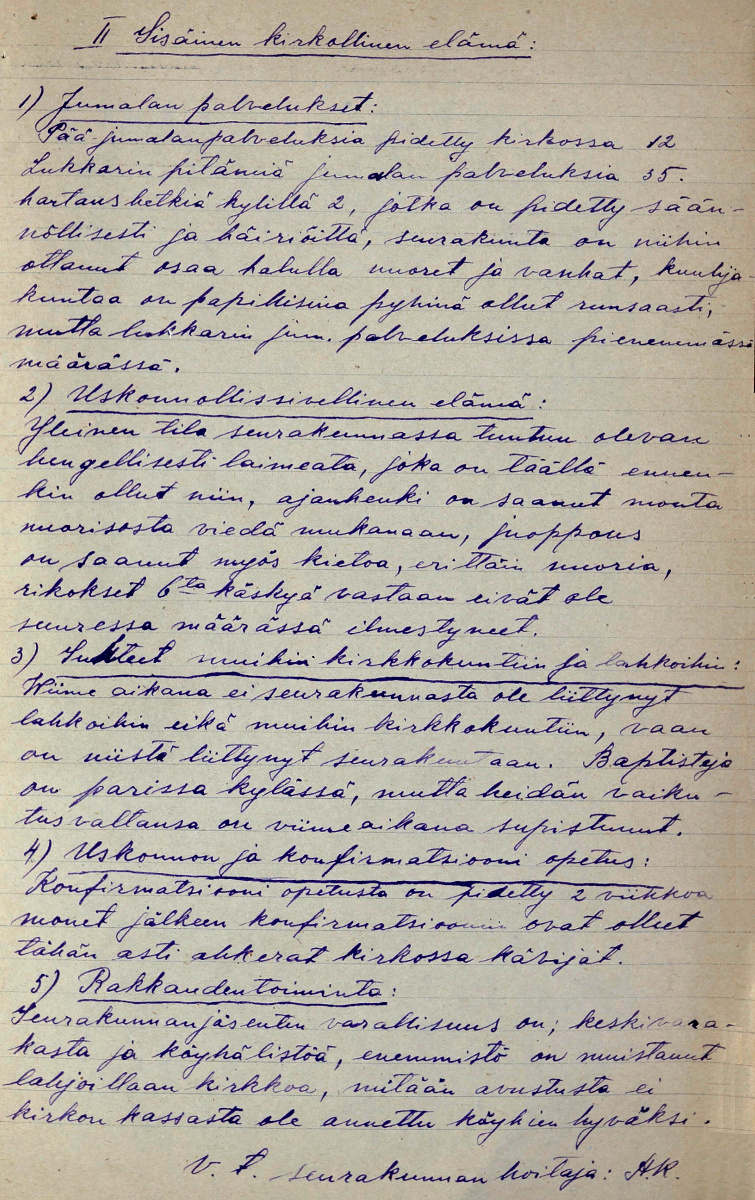 II Sisäinen kirkollinen elämä:
1) Jumalan palvelukset:
Pää-jumalanpalveluksia pidetty kirkossa 12
Lukkarin pitämiä jumalan palveluksia 35.
hartaushetkiä kylillä 2, jotka on pidetty sään-
nöllisesti ja häiriöittä, seurakunta on niihin
ottanut osaa halulla nuoret ja vanhat, kuulija-
kuntaa on papillisina pyhinä ollut runsaasti,
mutta lukkarin jum. palveluksissa pienemmässä
määrässä.
2) Uskonnollissivellinen elämä:
Yleinen tila seurakunnassa tuntuu olevan
hengellisesti laimeata, joka on täällä ennen-
kin ollut niin, ajanhenki on saanut monta
nuorisosta viedä mukanaan, juoppous
on saanut myös kietoa, erittäin nuoria,
rikokset 6ta käskyä vastaan eivät ole
suuressa määrässä ilmestyneet.
3) Suhteet muihin kirkkokuntiin ja lahkoihin:
Wiime aikana ei seurakunnasta ole liittynyt
lahkoihin eikä muihin kirkkokuntiin, vaan
on niistä liittynyt seurakuntaan. Baptisteja
on parissa kylässä, mutta heidän vaiku-
tusvaltansa on viimeaikana supistunut.
4) Uskonnon ja konfirmatsiooni opetus:
Konfirmatsiooni opetusta on pidetty 2 viikkoa
monet jälkeen konfirmatsioonin ovat olleet
tähän asti ahkerat kirkossa kävijät.
5) Rakkaudentoiminta:
Seurakunnanjäsenten varallisuus on; keskivara-
kasta ja köyhälistöä, enemmistö on muistanut
lahjoillaan kirkkoa, mitään avustusta ei
kirkon kassasta ole annettu köyhien hyväksi.
V. t. seurakunnan hoitaja: A.K.